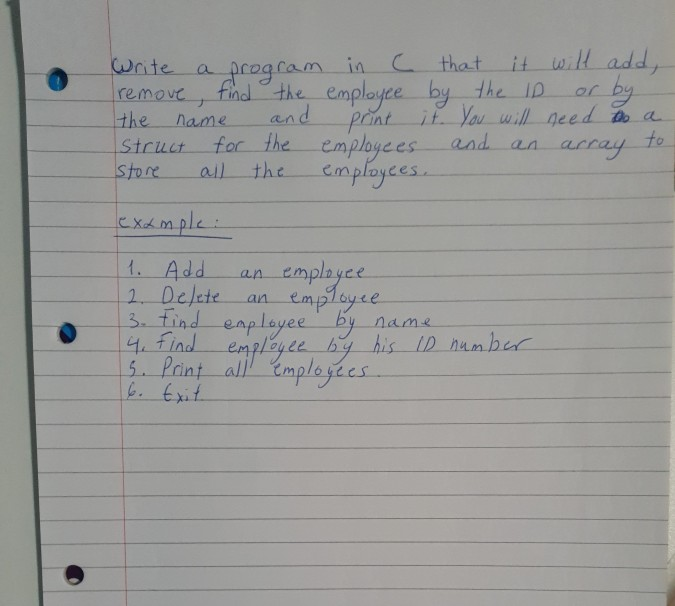 Write a program in C that it will add,
remove, find the employee by the ID or by
the name and print it. You will need a
struct for the employees and an array to
store all the employees.
Example:
1. Add an employee
2. Delete an employee
3. Find employee by name
4. Find employee by his ID number
5. Print all employees.
6. Exit